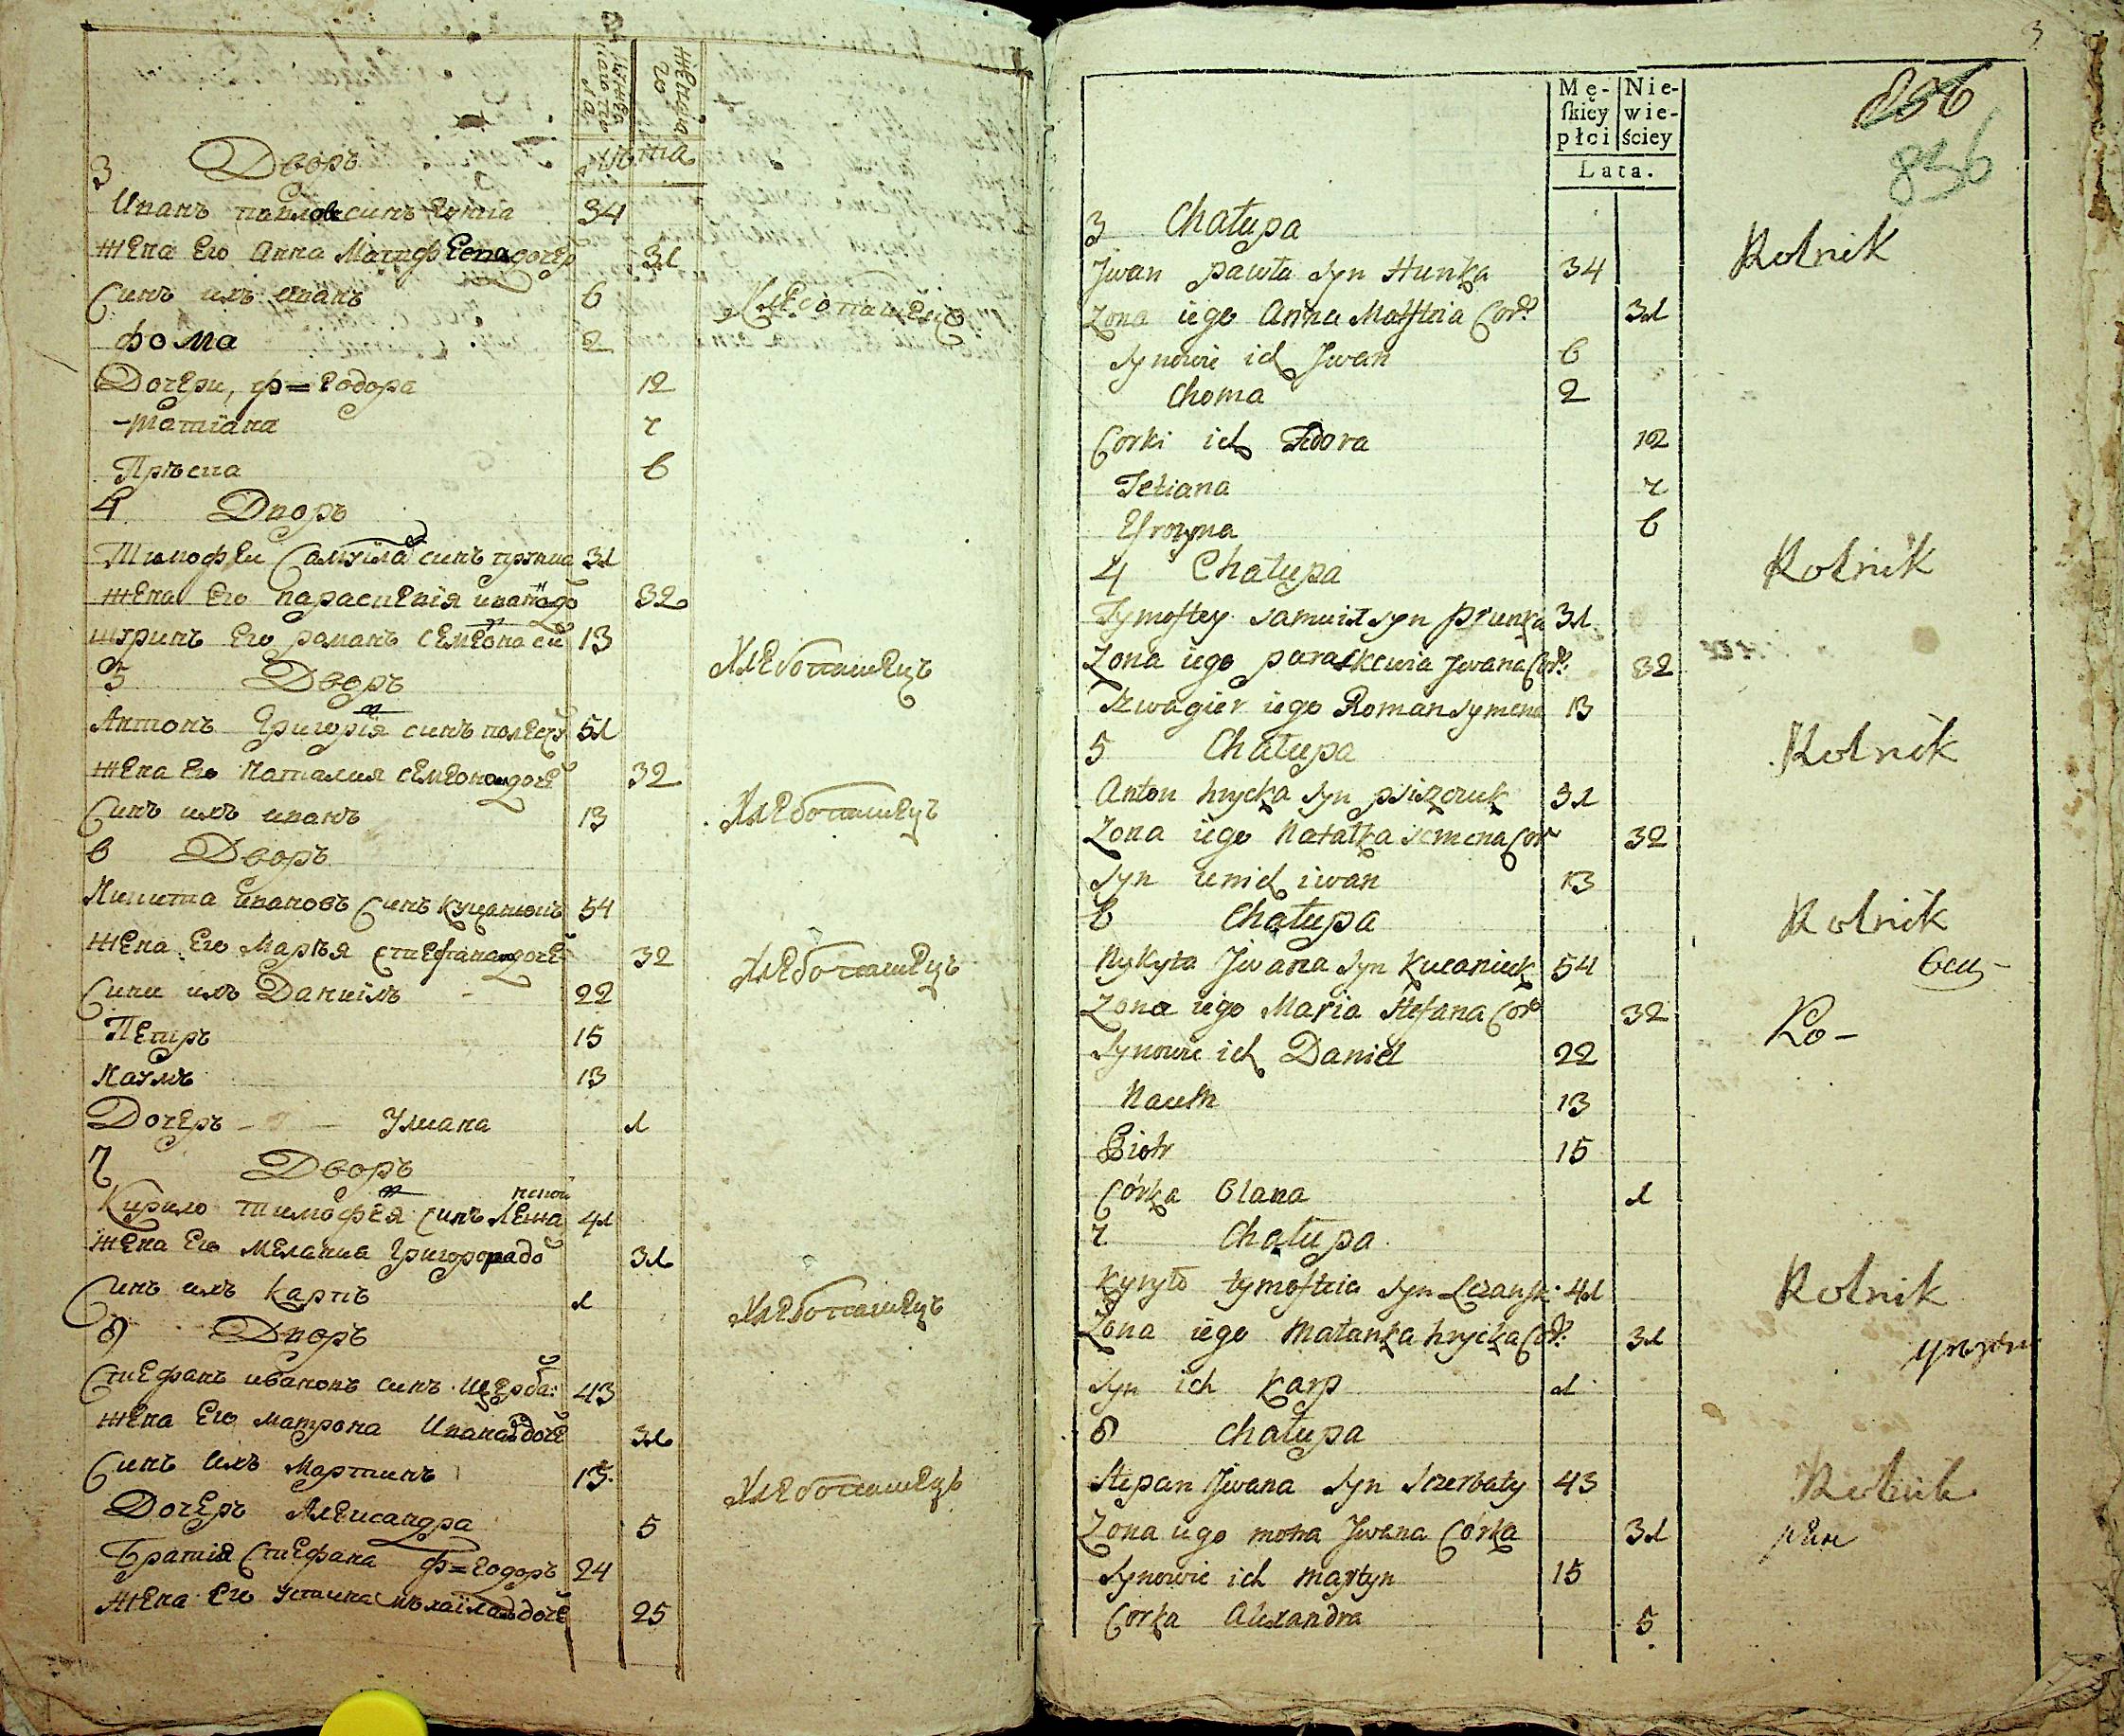 мужеска
го по
ла
женска
го
лѣта
3 Дворъ
Иванъ павловъ синъ 34
жена Его Анна Матфѣева дочеръ 31
Синъ ихъ иванъ 6
фома 2
Хлебопашецъ
Дочери, ф=еодора 12
Татiана 7
6
4 Дворъ
Тимофеи Самуила синъ 31
жена Его параскевiя ивана до 32
шуринъ Его романъ семена си 13
Хлебопашецъ
5 Дворъ
Антонъ Григорiя синъ 51
жена Его Наталия семенова дочеꙵ 32
Синъ ихъ иванъ 13
Хлебопашецъ
6 Дворъ
Никита ивановъ Синъ Куцанюкъ 54
жена Его Марѣя стефана дочеꙵ 32
Хлебопашецъ
Сини ихъ Данилъ 22
Петръ 15
Наумъ 13
Дочеръ Улиана 1
7 Дворъ
Кирило тимофея Синъ Леща 41
жена Его мелания Григорова до 31
Синъ ихъ Карпъ 1
Хлебопашецъ
8 Дворъ
Стефанъ ивановъ синъ Щерба: 43
жена Его матрона Ивана дочеꙵ 31
Синъ ихъ Мартинъ 15
Хлебопашецъ
Дочеръ Александра 5
Братiя Стефана ф=еодоръ 24
Жена Его Устина михаила дочеꙵ 25
3
Mę- Nie-
ſkiey wie-
płci ściey
Lata.
856
836
3 Chałupa
Rolnik
Jwan pawła Syn Hunka 34
Zona iego Anna Matfteia Cor: 31
Synowie ich Jwan 6
Choma 2
Corki ich Fedora 12
Tetiana 7
Efrozyna 6
4 Chałupa
Rolnik
Tymoftey samuiła syn 31
Zona iego paraskewia Jwana Cor: 32
Szwagier iego Roman Symena 13
5 Chałupa
Rolnik
Anton hrycka Syn 31
Zona iego Natałka semena Cor 32
Syn u nich iwan 13
6 Chałupa
Rolnik
Nykyta Jwana Syn Kucaniuk 54
Zona iego Maria Stefana Cor 32
Ro-
Synowie ich Daniel 22
Naum 13
Piotr 15
Córka Olana 1
7 Chałupa
Kyryło tymofteia Syn Lezansk: 41
Rolnik
Zona iego Małanka hrycka Cor: 31
Syn ich Karp 1
8 Chałupa
Stepan Jwana Syn Szerbaty 43
Rolnik
Zona iego motra Jwana Córka 31
Synowie ich martyn 15
Corka Alexandra 5